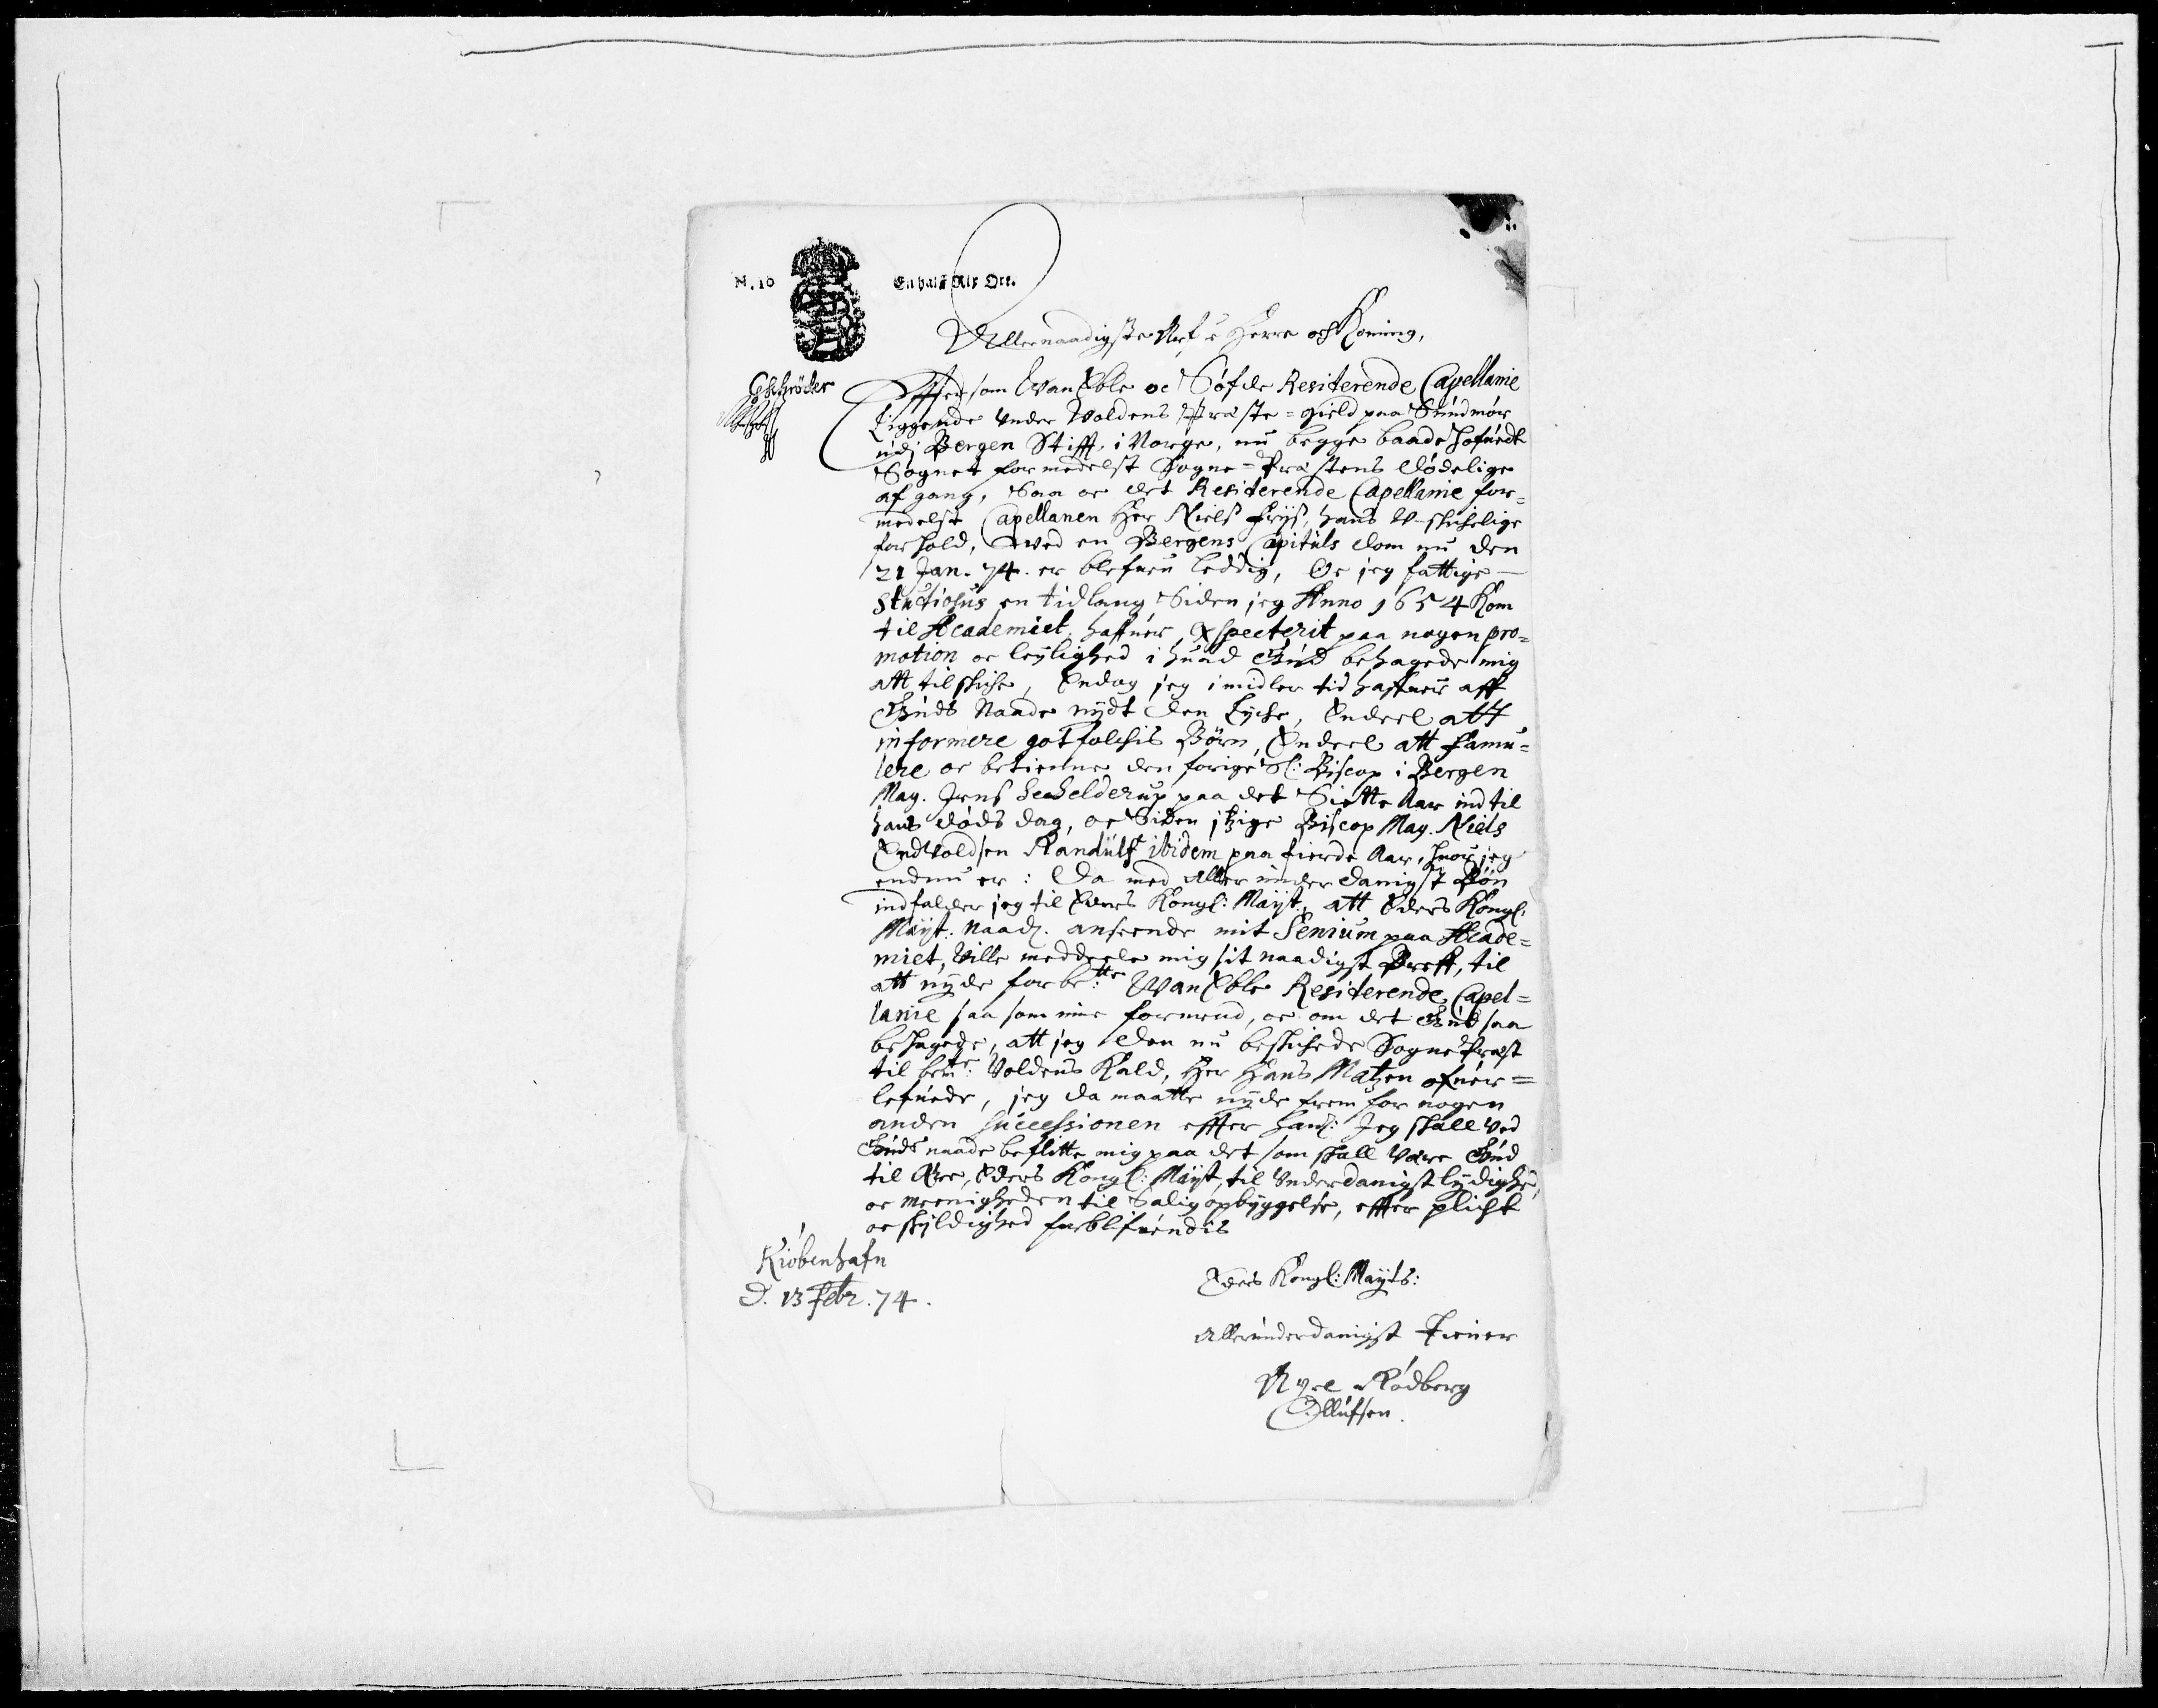 N. 10
En halff Rix Ort.
Allernaadigste Arfve Herre och Koning,
GSchröder
Effter som WanElve oc Søfde Residerende Capellanie
Liggende under Woldens Præste=gield paa Sundmør
udj Bergen Stifft, i Norge, nu begge baade Hofuedt
Sognet formedelst Sogne=Præstens dødelige
afgang, Saa oc det Residerende Capellanie for=
medelst Capellanen Her Niels Friis, hans W-skichelige
forhold, ved en Bergens Capituls dom nu den
21 Jan. 74. er blefuen leddig, Oc jeg fattige
Studiosus en tidlang Siden jeg Anno 1654 Kom
til Academiet, haffuer Expecterit paa nogen pro=
motion oc leylighed i huad Gud behagede mig
att tilskiche, Endog jeg imidler tid haffuer aff
Guds Naade nydt den Lyche, Endeel att
informere gotfolchis Børn, Endeel att famu=
lere oc betienne den forige Sl: Biscop i Bergen
Mag. Jens Schelderup paa det Siette Aar indtil
hans døds dag, oc Siden jtzige Biscop Mag. Niels
Enevoldsen Randulf ibidem paa fierde Aar, huor jeg
endnu er: Da med Aller underdanigst Bøn
indfalder jeg til Eders Kongl: Mayst., att Eders Kongl:
Mayst: Naad. anseende mit Senium paa Acade=
miet, Ville meddeele mig sit naadigst Breff, til
att nyde forbe:tte WanElve Residerende Capel=
lanie saa som min formend, oc om det Gud saa
behagede, att jeg den nu beskichede Sogne Præst
til bem:te Voldens Kald, Her Hans Matzen ofuer=
lefuede, jeg da maatte nyde frem for nogen
anden Successionen effter ham: Jeg skall ved
Guds naade beflitte mig paa det som skall være Gud
til Ære, Eders Kongl: Mayst, til Underdanigst lydighed,
oc Meenigheden til Salig opbyggelse, effter plicht
oc skyldighed forblifuendis
Kiøbenhafn
d. 13 Febr. 74.
Eders Kongl: Mayts:
Allerunderdanigst Tiener
Axel Rødberg
Ollufsen.